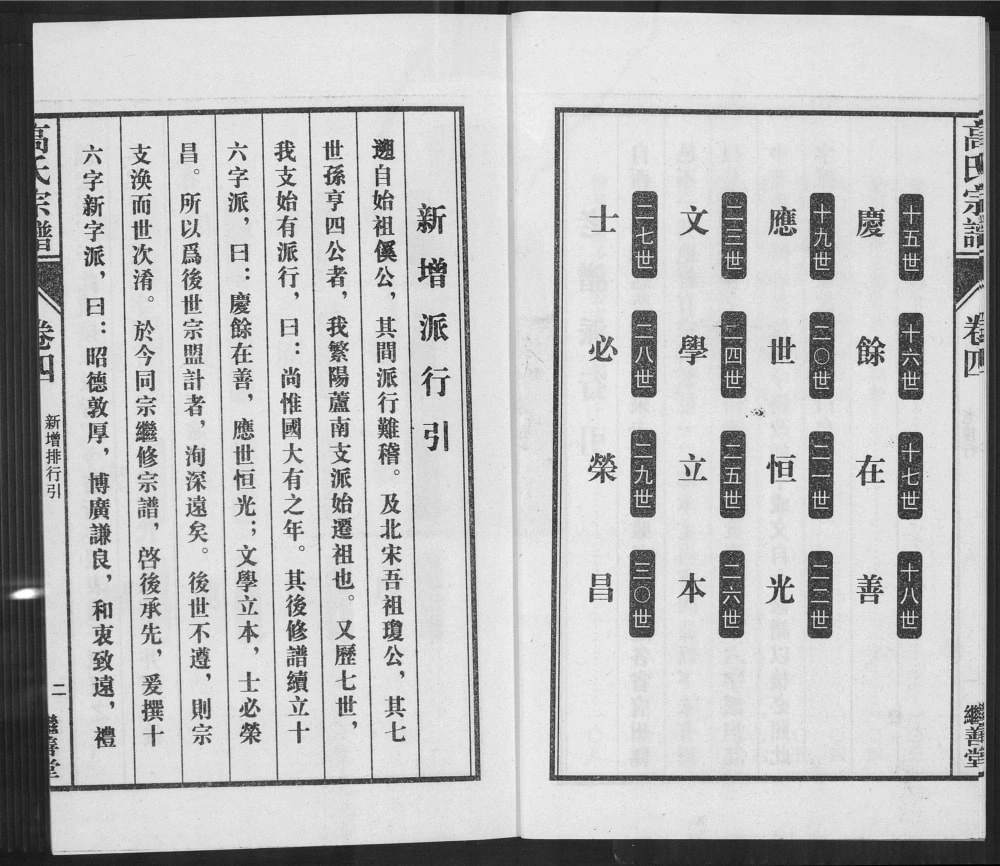 高氏宗譜
卷四
繼善堂
十五世 慶
十六世 餘
十七世 在
十八世 善
十九世 應
二〇世 世
二一世 恒
二二世 光
二三世 文
二四世 學
二五世 立
二六世 本
二七世 士
二八世 必
二九世 榮
三〇世 昌
新增派行引
遡自始祖傒公，其間派行難稽。及北宋吾祖瓊公，其七
世孫亨四公者，我繁陽蘆南支派始遷祖也。又歷七世，
我支始有派行，曰：尚惟國大有之年。其後修譜續立十
六字派，曰：慶餘在善，應世恒光；文學立本，士必榮
昌。所以爲後世宗盟計者，洵深遠矣。後世不遵，則宗
支渙而世次淆。於今同宗繼修宗譜，啓後承先，爰撰十
六字新字派，曰：昭德敦厚，博廣謙良，和衷致遠，禮
高氏宗譜
卷四
新增排行引
二
繼善堂